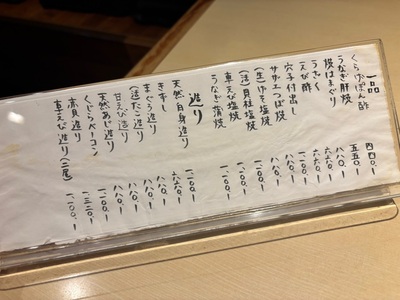 一品
くらげぽん酢 四四〇ー
うなぎ肝焼 五五〇ー
焼はまぐり 八八〇ー
うざく 六六〇ー
えび酢 六六〇ー
穴子付出し 一、一〇〇ー
サザエつぼ焼 八八〇ー
(生)げそ塩焼 八八〇ー
(活)貝柱塩焼 一、一〇〇ー
車えび塩焼 一、一〇〇ー
うなぎ蒲焼 一、一〇〇ー
造り
天然白身造り 一、一〇〇ー
きずし 六六〇ー
まぐろ造り 八八〇ー
(活)たこ造り 八八〇ー
甘えび造り 八八〇ー
天然あじ造り 八八〇ー
くじらベーコン 一、一〇〇ー
赤貝造り 一、三二〇ー
車えび造り(二尾) 一、一〇〇ー